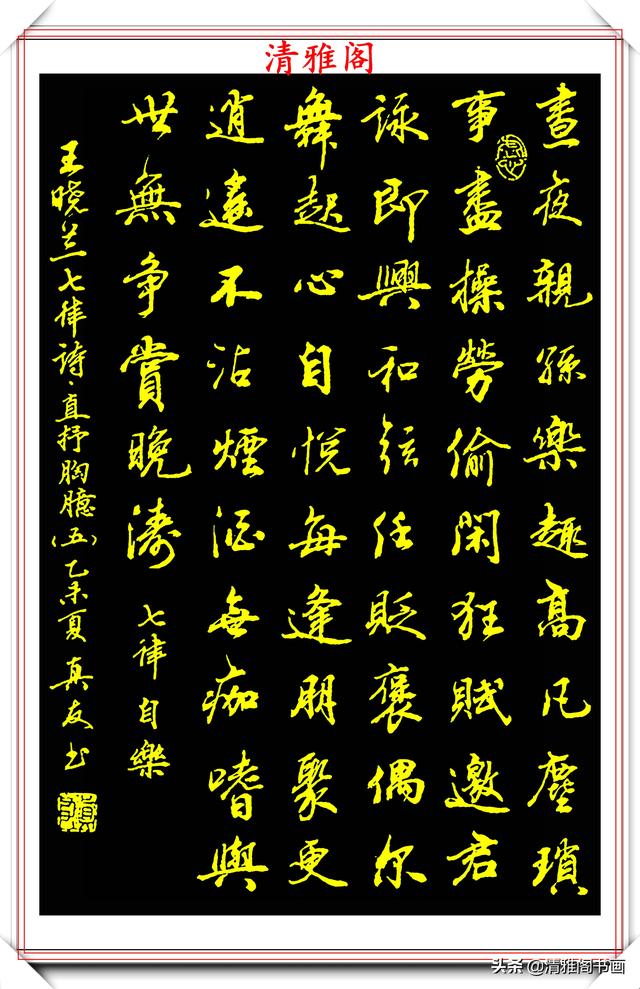 清雅阁
晝夜親孫樂趣高凡塵瑣
事盡操勞偷閑狂賦邀君
詠即興和弦任貶褒偶尔
舞起心自悅每逢朋聚更
逍遙不沾煙酒無痂嗜與
世無争賞晚濤 七律自樂
王晓兰七律詩、直抒胸臆(五)乙未夏 真友书
头条@清雅阁书画